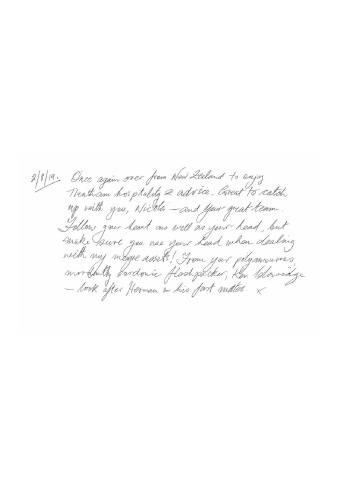 2/8/19. Once again over from New Zealand to enjoy
Trentham hospitality & advice. Great to catch
up with you, Nicola – and your great team.
Follow your heart as well as your head, but
make sure you use your head when dealing
with my meagre assets! From your polymourous,
mordantly sardonic flashpacker, Ken
– look after Herman & his first mates x